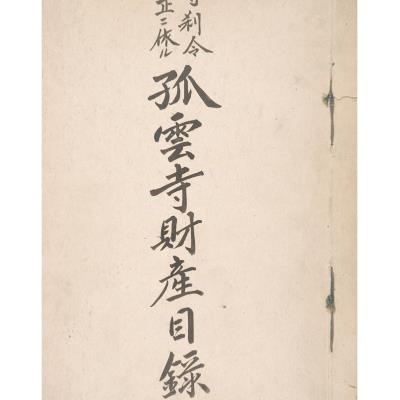 寺刹令
正ニ依ル
孤雲寺財産目錄